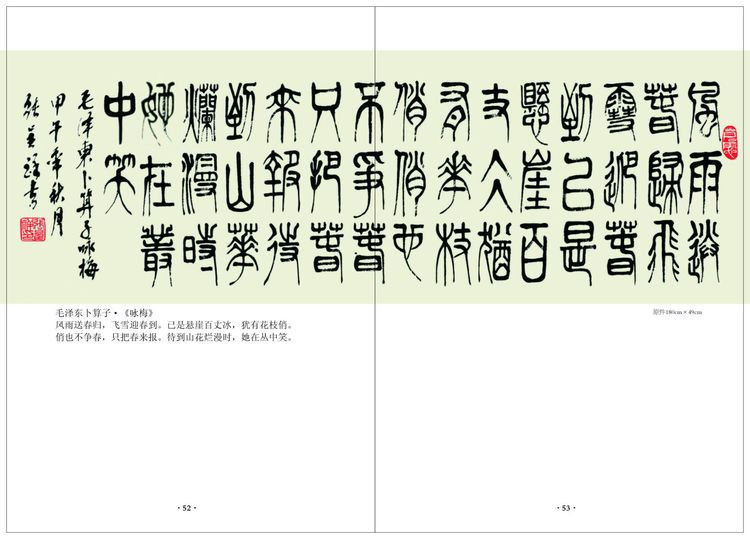 風雨送
春歸飛
雪迎春
到已是
懸崖百
丈冰猶
有花枝
俏俏也
不爭春
只把春
來報待
到山花
爛漫時
她在叢
中笑
毛澤東卜算子咏梅
甲午年秋月
張
書
毛泽东卜算子·《咏梅》
风雨送春归，飞雪迎春到。已是悬崖百丈冰，犹有花枝俏。
俏也不争春，只把春来报。待到山花烂漫时，她在丛中笑。
原件180cm×49cm
·52·
·53·